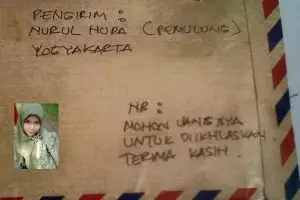 PENGIRIM :
NURUL HUDA (PEMULUNG)
YOGYAKARTA
NB :
MOHON UANGNYA
UNTUK DIIKHLASKAN
TERIMA KASIH.